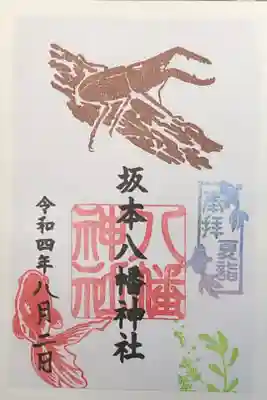 奉拝
夏詣
坂本八幡神社
八幡
神社
令和四年八月二日